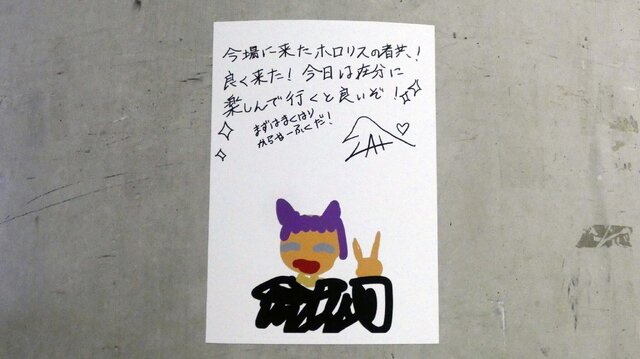 会場に来たホロリスの者共！
良く来た！今日は存分に
楽しんで行くと良いぞ！
まずはまくはり
からせーふくだ！